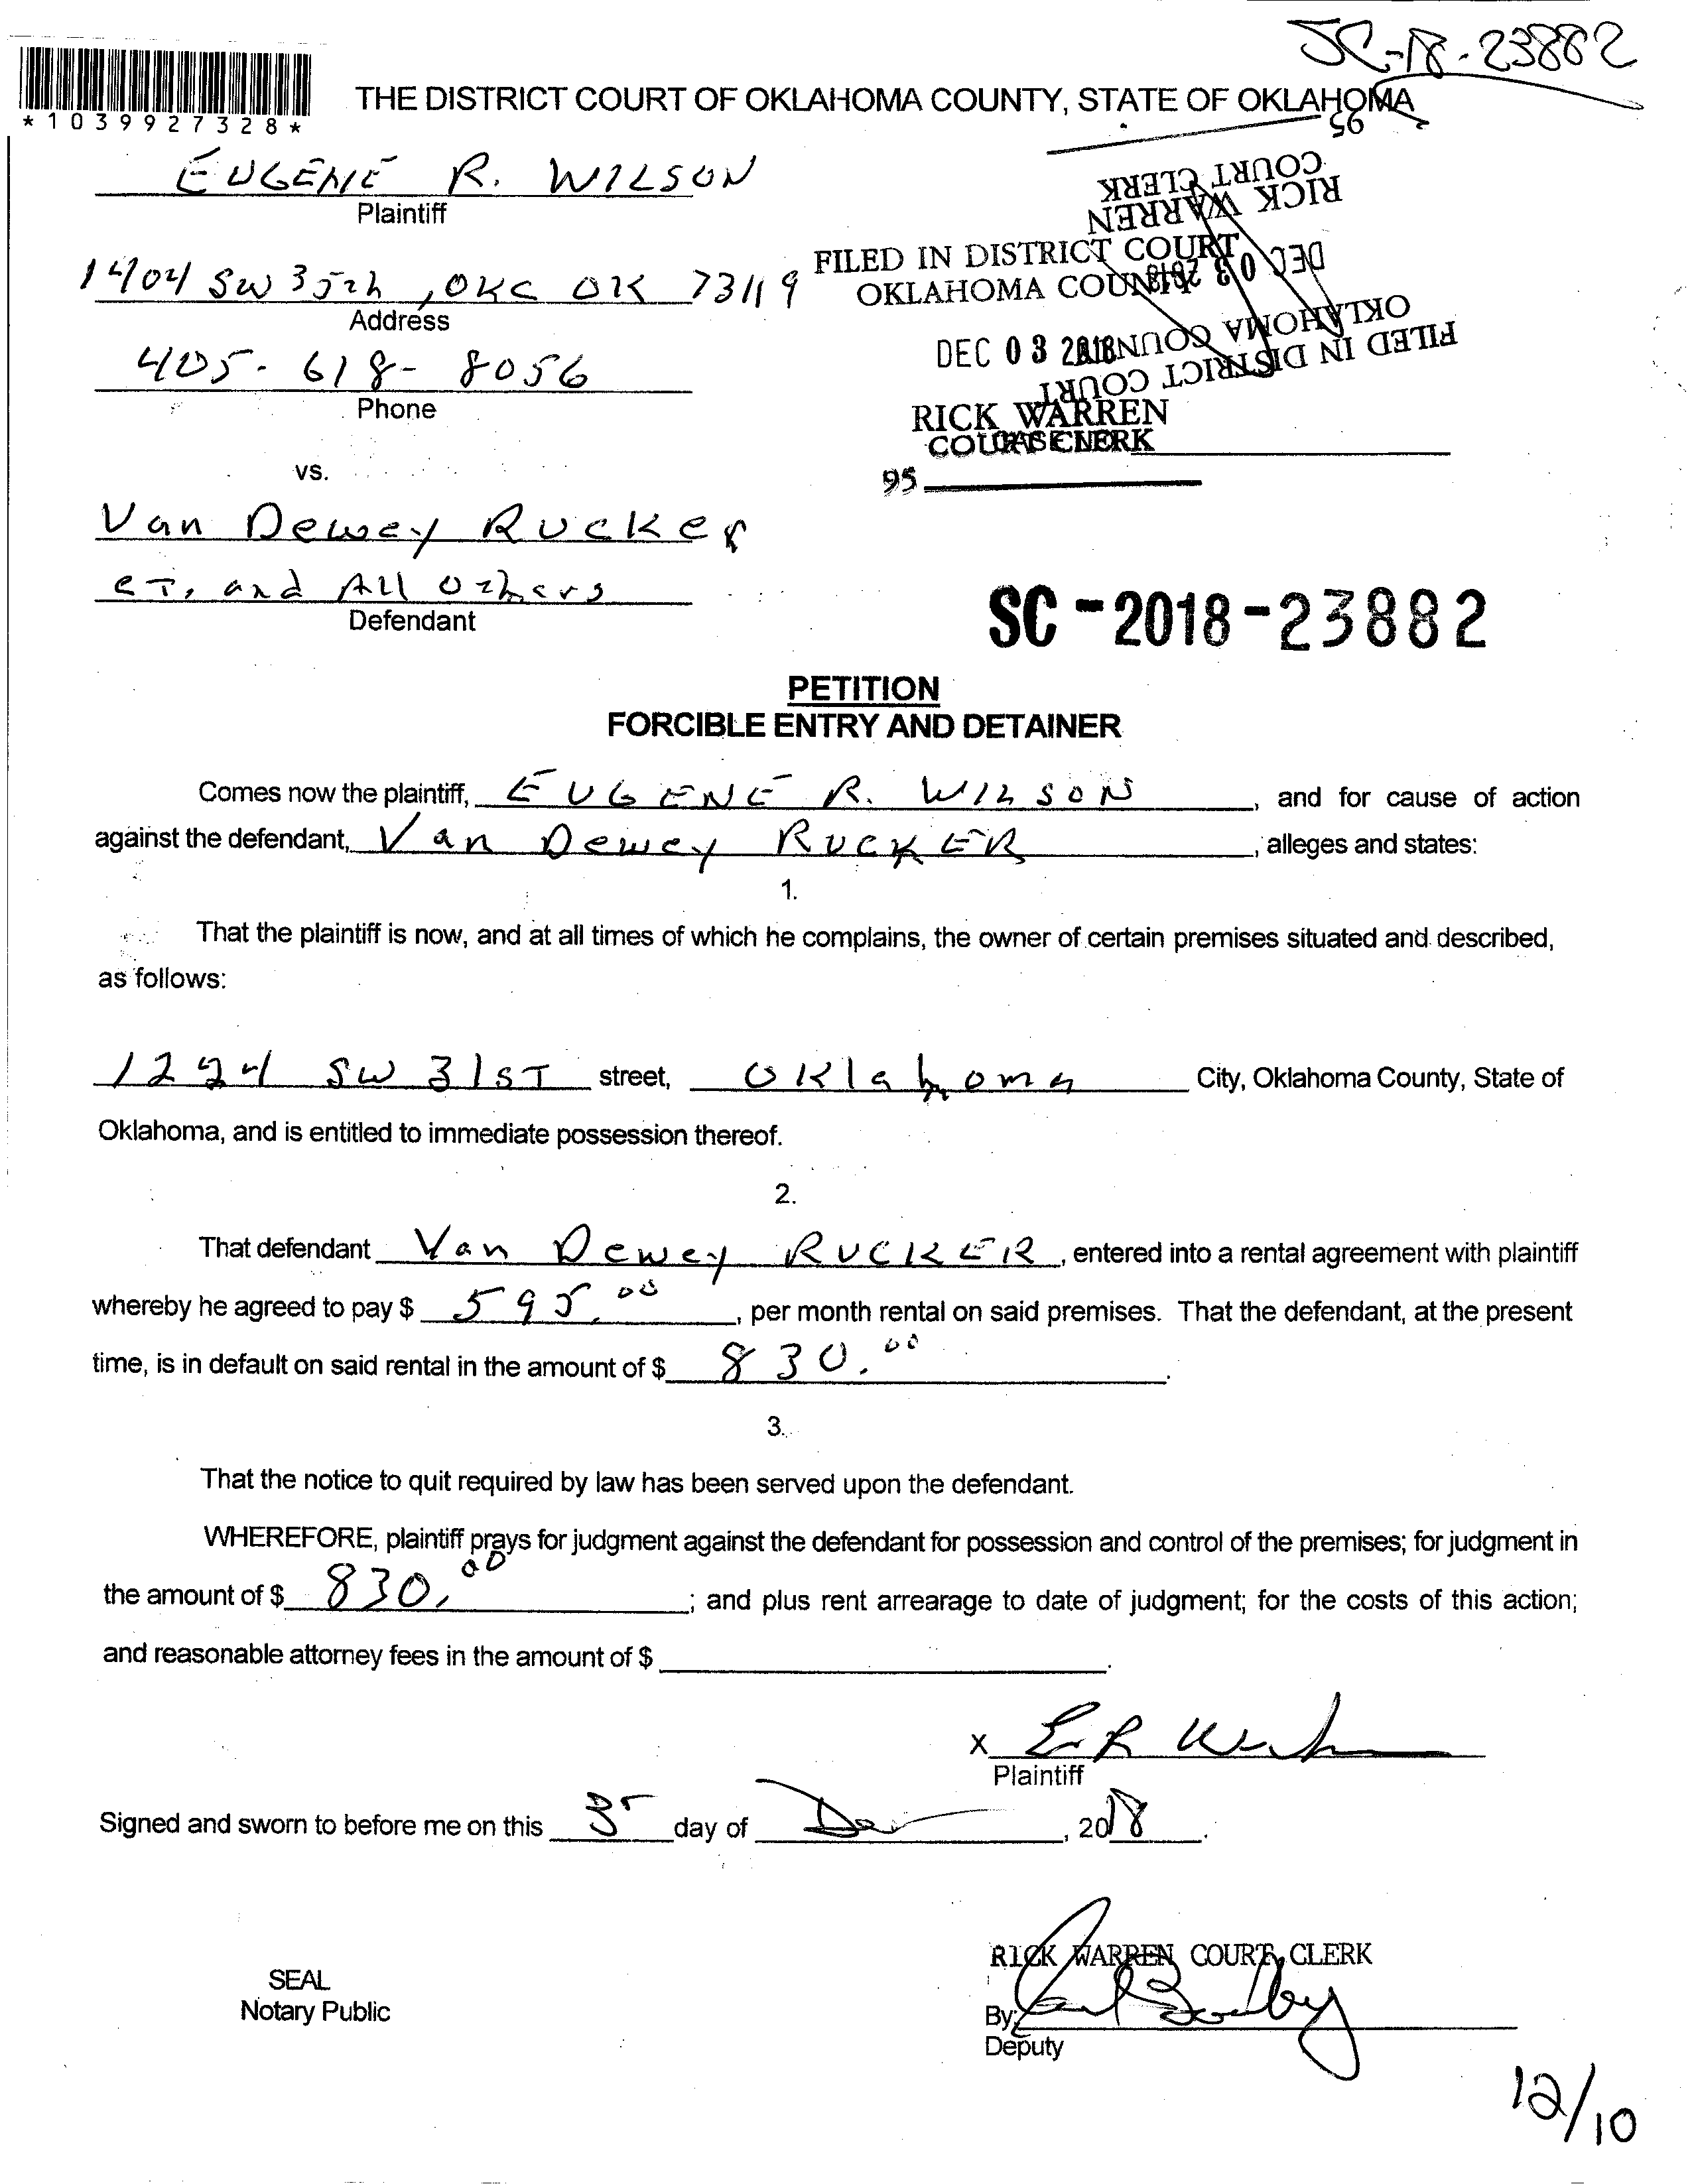 SC-18-23882
*1039927328*
THE DISTRICT COURT OF OKLAHOMA COUNTY, STATE OF OKLAHOMA
95
RICK WARREN
COURT CLERK
DEC 03 2018
FILED IN DISTRICT COURT
OKLAHOMA COUNTY
EUGENE R. WILSON
Plaintiff
1404 SW 35th, OKC OK 73119
Address
405-618-8056
Phone
FILED IN DISTRICT COURT
OKLAHOMA COUNTY
DEC 03 2018
RICK WARREN
COURT CLERK
CASE NO.
95
vs.
Van Dewey Rucker
et, and All Others
Defendant
SC-2018-23882
PETITION
FORCIBLE ENTRY AND DETAINER
Comes now the plaintiff, EUGENE R. WILSON, and for cause of action
against the defendant, Van Dewey RUCKER, alleges and states:
1.
That the plaintiff is now, and at all times of which he complains, the owner of certain premises situated and described,
as follows:
SW 31ST street, Oklahoma City, Oklahoma County, State of
Oklahoma, and is entitled to immediate possession thereof.
2.
That defendant Van Dewey RUCKER, entered into a rental agreement with plaintiff
whereby he agreed to pay $ 595.00, per month rental on said premises. That the defendant, at the present
time, is in default on said rental in the amount of $ 830.00.
3.
That the notice to quit required by law has been served upon the defendant.
WHEREFORE, plaintiff prays for judgment against the defendant for possession and control of the premises; for judgment in
the amount of $ 830.00; and plus rent arrearage to date of judgment; for the costs of this action;
and reasonable attorney fees in the amount of $ .
X E R
Plaintiff
Signed and sworn to before me on this 3r day of Dec, 2018.
RICK WARREN COURT CLERK
SEAL
Notary Public
By:
Deputy
12/10